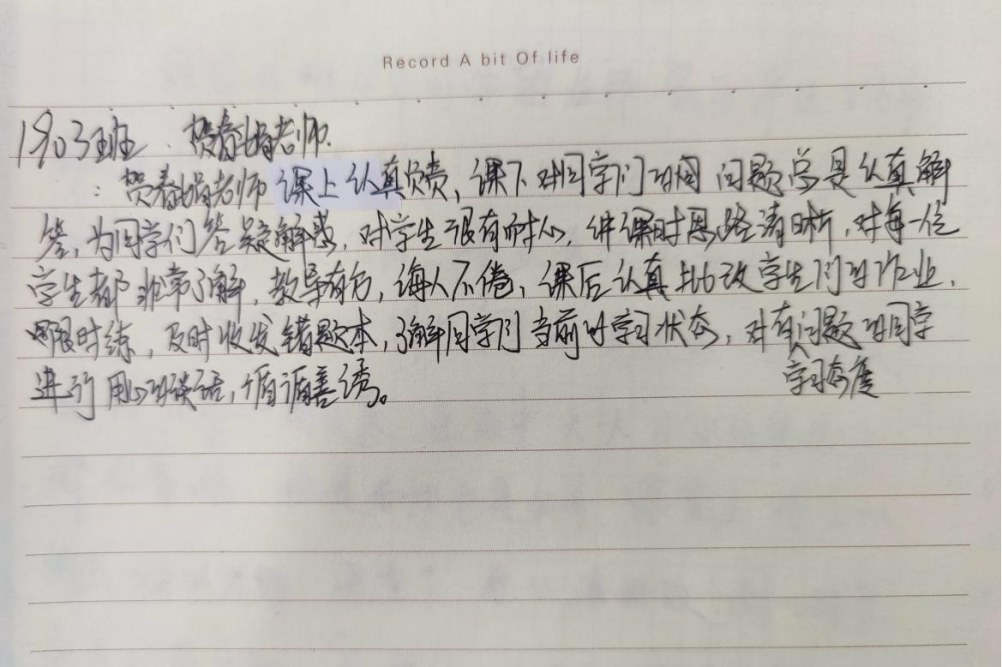 Record A bit Of life
1903班. 贺春娟老师.
: 贺春娟老师课上认真负责,课下对同学们的问题总是认真解
答,为同学们答疑解惑,对学生很有耐心,讲课时思路清晰,对每一位
学生都非常了解,教导有方,诲人不倦,课后认真批改学生们的作业,
限时练,及时收发错题本,了解同学们当前的学习状态,对有问题的同学
学习态度
进行用心的谈话,循循善诱。